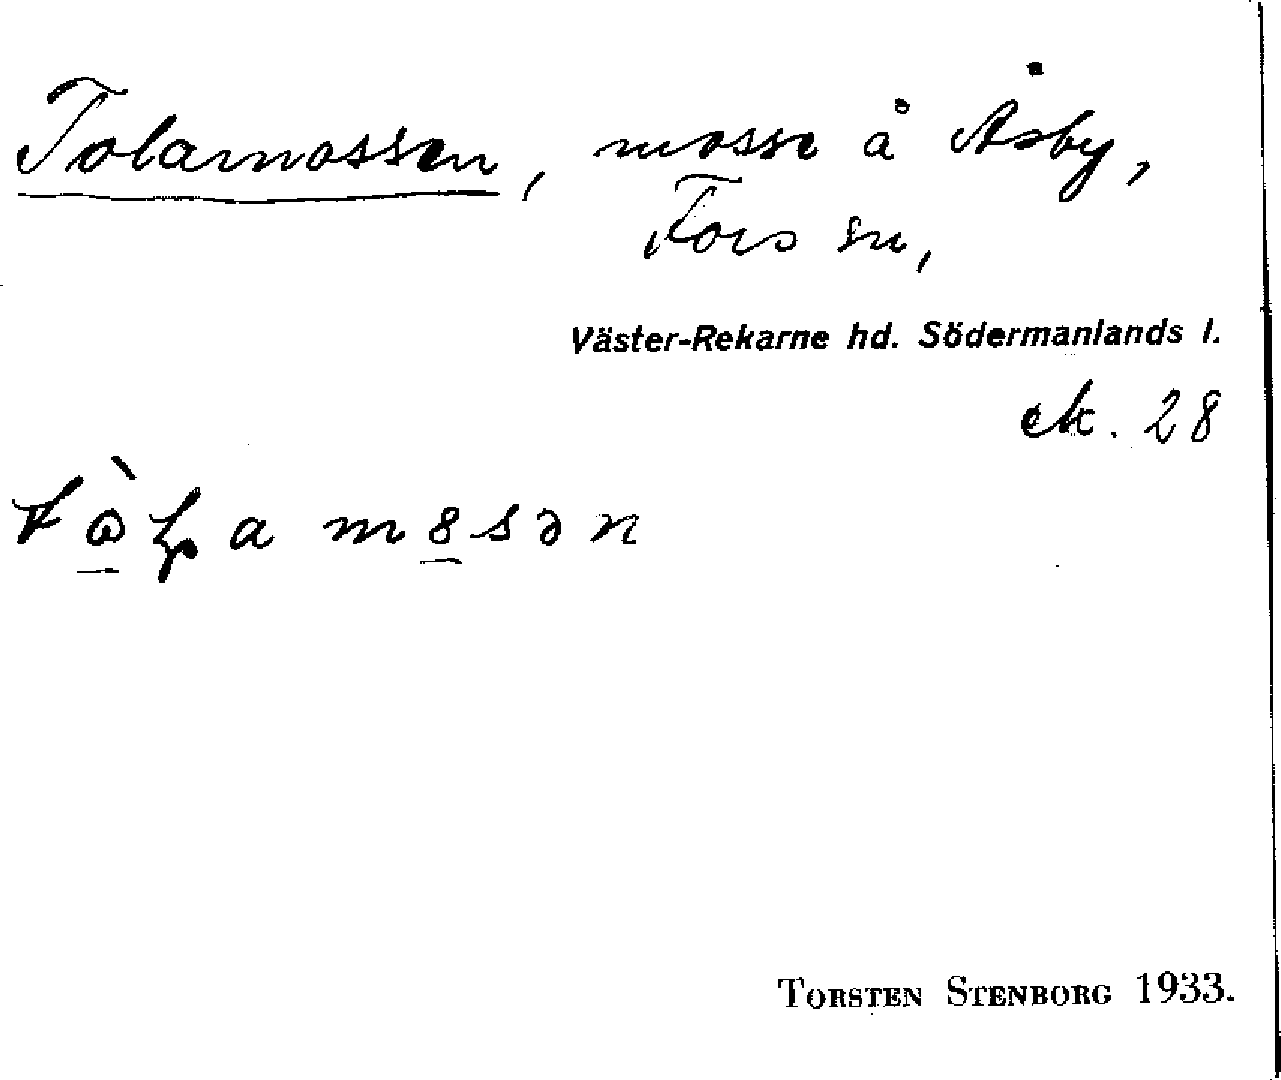 Tolamossen, mosse å Åsby,
Fors sn,
Väster-Rekarne hd. Södermanlands l.
ek. 28
TORSTEN STENBORG 1933.